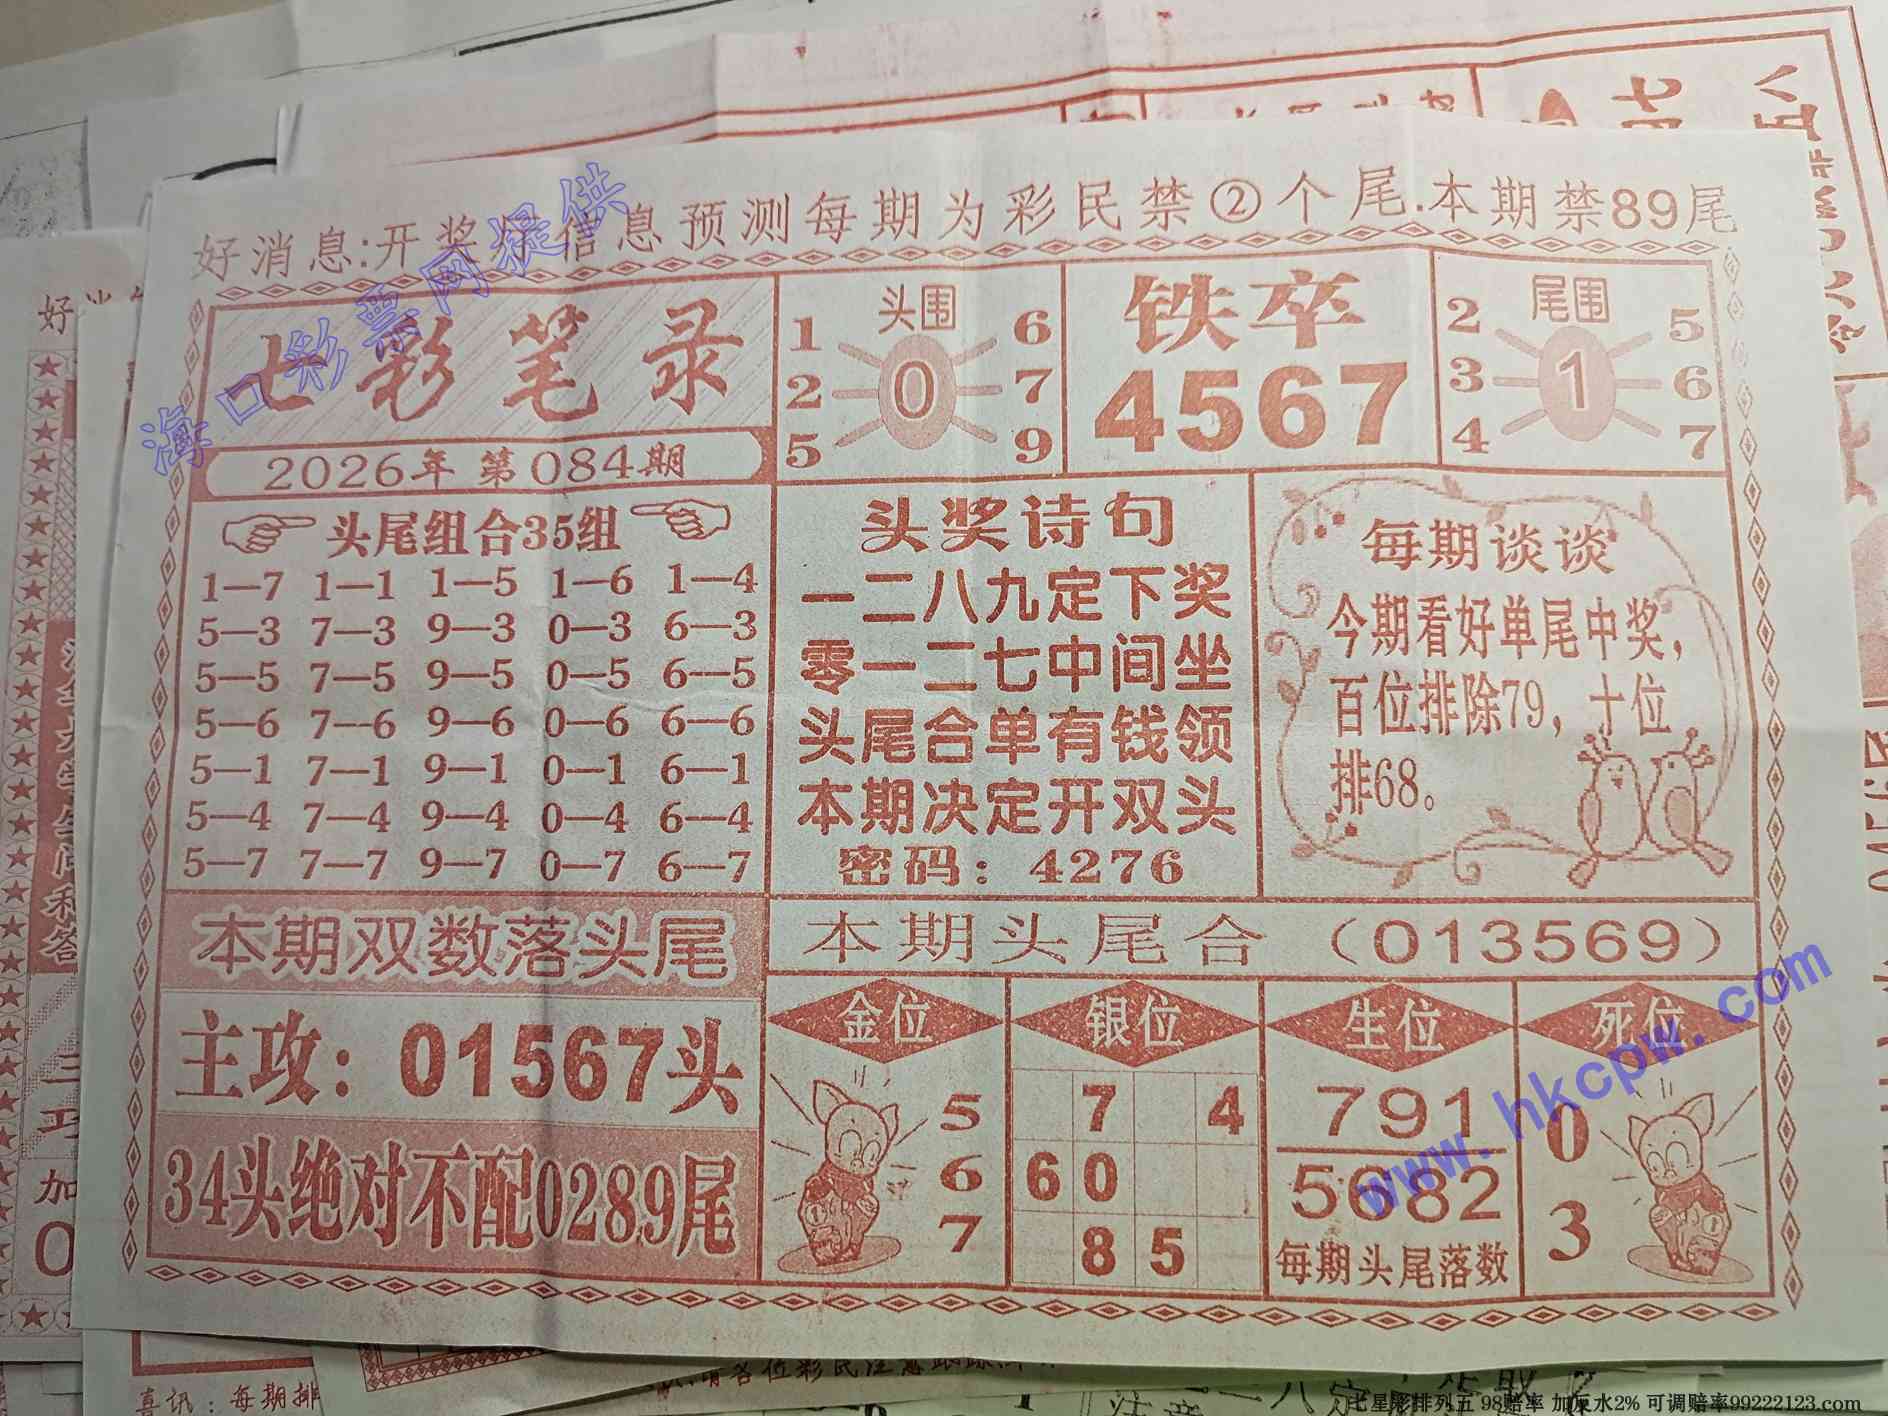 好消息:开奖厅信息预测每期为彩民禁②个尾.本期禁89尾
七彩笔录
2026年 第084期
头围
1 6
2 0 7
5 9
铁卒
4567
尾围
2 5
3 1 6
4 7
头尾组合35组
1—7 1—1 1—5 1—6 1—4
5—3 7—3 9—3 0—3 6—3
5—5 7—5 9—5 0—5 6—5
5—6 7—6 9—6 0—6 6—6
5—1 7—1 9—1 0—1 6—1
5—4 7—4 9—4 0—4 6—4
5—7 7—7 9—7 0—7 6—7
头奖诗句
一二八九定下奖
零一二七中间坐
头尾合单有钱领
本期决定开双头
密码：4276
每期谈谈
今期看好单尾中奖，
百位排除79，十位
排68。
本期双数落头尾
主攻：01567头
34头绝对不配0289尾
本期头尾合（013569）
金位
5
6
7
银位
7 4
60
85
生位
791
5682
每期头尾落数
死位
0
3
海口彩票网提供
www.hkcpw.com
喜讯：每期排
七星彩排列五 98赔率 加反水2% 可调赔率99222123.com